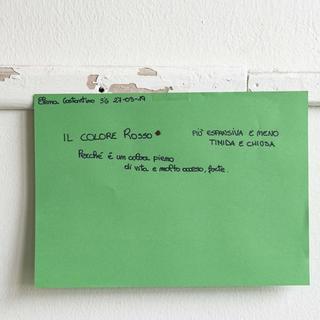 Elena Costantino 3G 27-03-19
IL COLORE ROSSO
Perché é un colore pieno
di vita e molto acceso, forte.
PIÙ ESPANSIVA E MENO
TIMIDA E CHIUSA